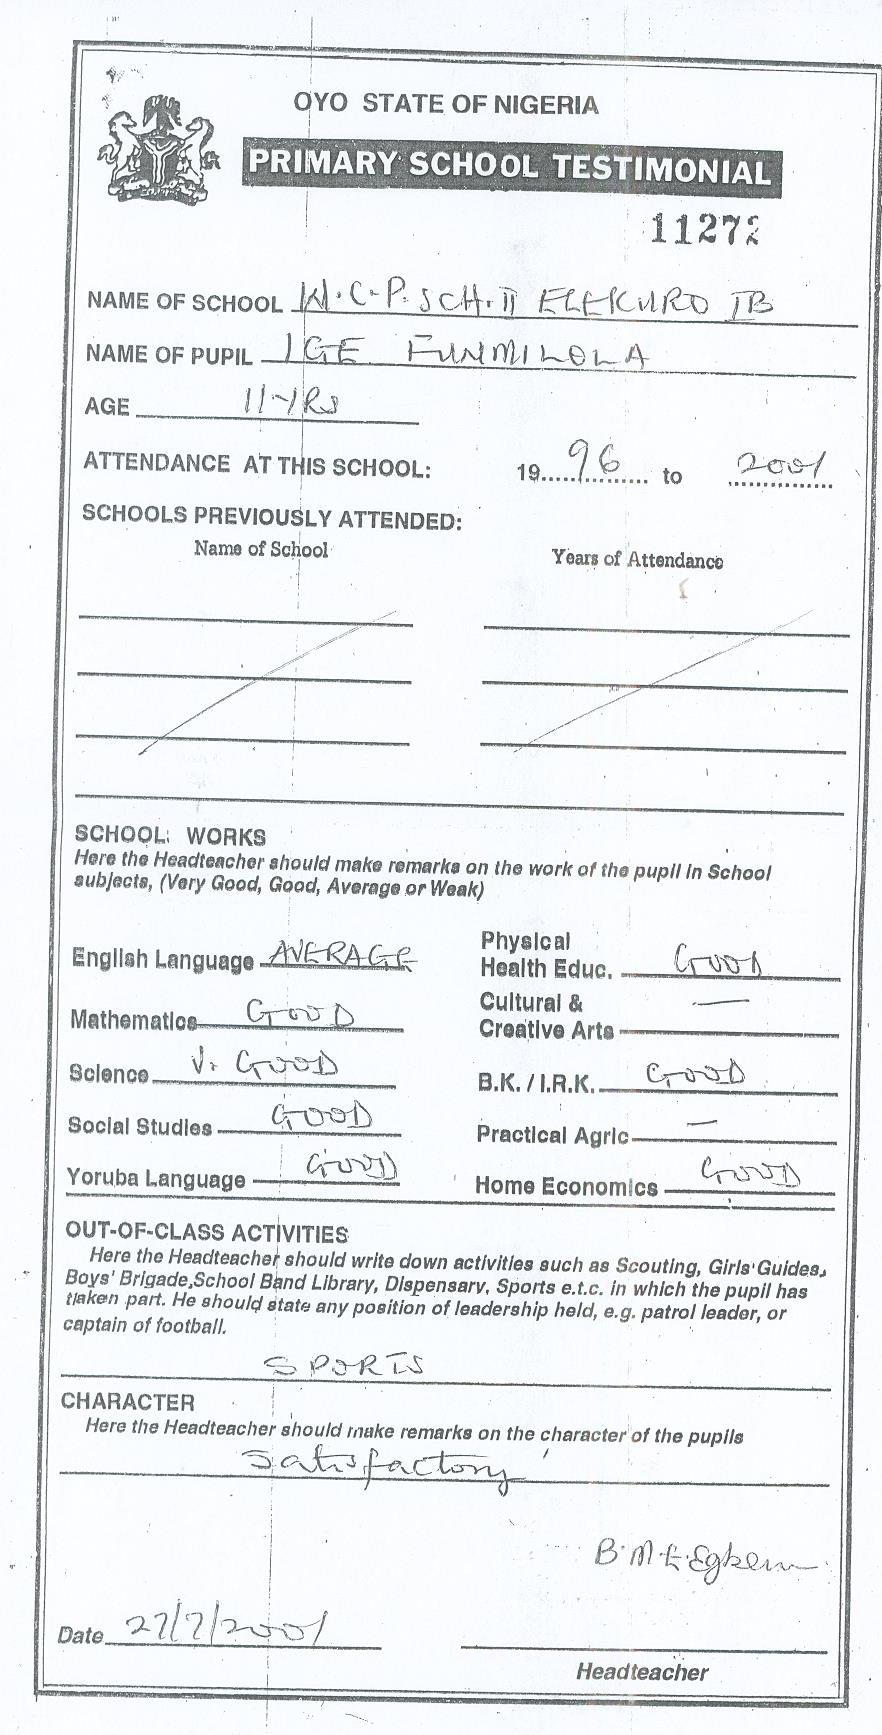 OYO STATE OF NIGERIA
PRIMARY SCHOOL TESTIMONIAL
11272
NAME OF SCHOOL W.C.P. SCH. II ELEKURO IB
NAME OF PUPIL IGE FUNMILOLA
AGE 11YRS
ATTENDANCE AT THIS SCHOOL: 1996 to 2001
SCHOOLS PREVIOUSLY ATTENDED:
Name of School Years of Attendance
SCHOOL WORKS
Here the Headteacher should make remarks on the work of the pupil in School
subjects, (Very Good, Good, Average or Weak)
English Language AVERAGE
Mathematics GOOD
Science V. GOOD
Social Studies GOOD
Yoruba Language GOOD
Physical
Health Educ. GOOD
Cultural &
Creative Arts —
B.K. / I.R.K. GOOD
Practical Agric —
Home Economics GOOD
OUT-OF-CLASS ACTIVITIES
Here the Headteacher should write down activities such as Scouting, Girls' Guides,
Boys' Brigade, School Band Library, Dispensary, Sports e.t.c. in which the pupil has
taken part. He should state any position of leadership held, e.g. patrol leader, or
captain of football.
SPORTS
CHARACTER
Here the Headteacher should make remarks on the character of the pupils
Satisfactory
B.M.E.
Date 27/7/2001
Headteacher